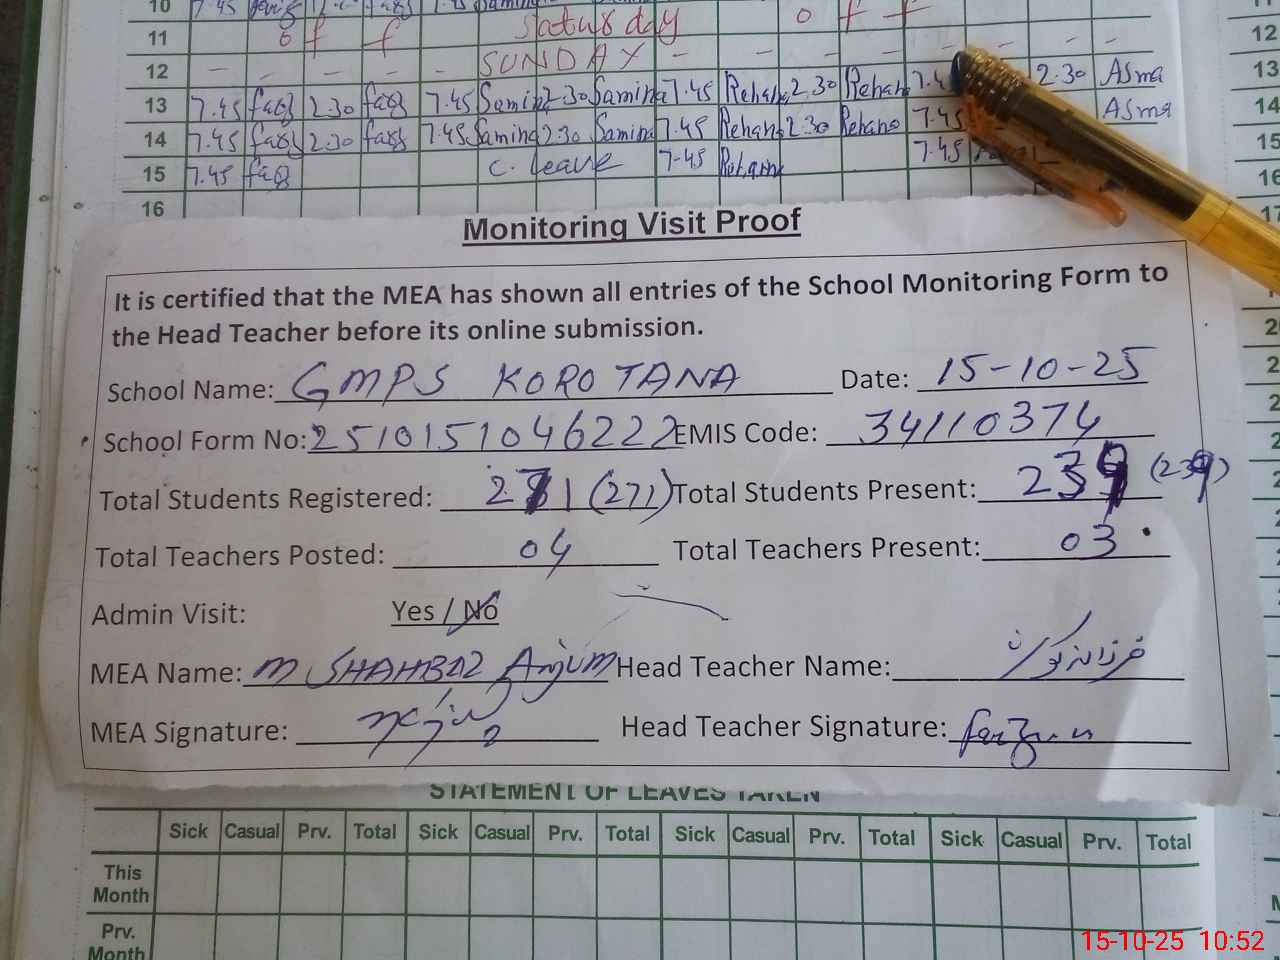 10 7.45 2.30 7.45
11 off Status day off
12 - - - - - SUNDAY - - - - - - - -
13 7.45 2.30 7.45 Samina 2.30 Samina 7.45 Rehana 2.30 Rehana 7.45 2.30 Asma
14 7.45 2.30 7.45 Samina 2.30 Samina 7.45 Rehana 2.30 Rehana 7.45 Asma
15 7.45 C. leave 7-45 Rehana 7.45
16
12
13
14
15
16
Monitoring Visit Proof
It is certified that the MEA has shown all entries of the School Monitoring Form to
the Head Teacher before its online submission.
School Name: GMPS KOROTANA Date: 15-10-25
School Form No: 2510151046222 EMIS Code: 34110374
Total Students Registered: 271 (271) Total Students Present: 239 (239)
Total Teachers Posted: 04 Total Teachers Present: 03
Admin Visit: Yes / No
MEA Name: M SHAHBAZ Anjum Head Teacher Name: فرزانہ کوثر
MEA Signature: Head Teacher Signature:
STATEMENT OF LEAVES TAKEN
Sick Casual Prv. Total Sick Casual Prv. Total Sick Casual Prv. Total Sick Casual Prv. Total
This
Month
Prv.
Month
15-10-25 10:52